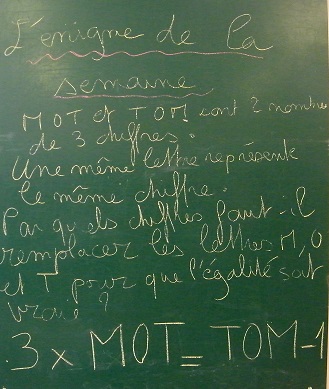 L'énigme de la
semaine
MOT et TOM sont 2 nombres
de 3 chiffres.
Une même lettre représente
le même chiffre.
Par quels chiffres faut-il
remplacer les lettres M, O
et T pour que l'égalité soit
vraie ?
3 x MOT = TOM-1